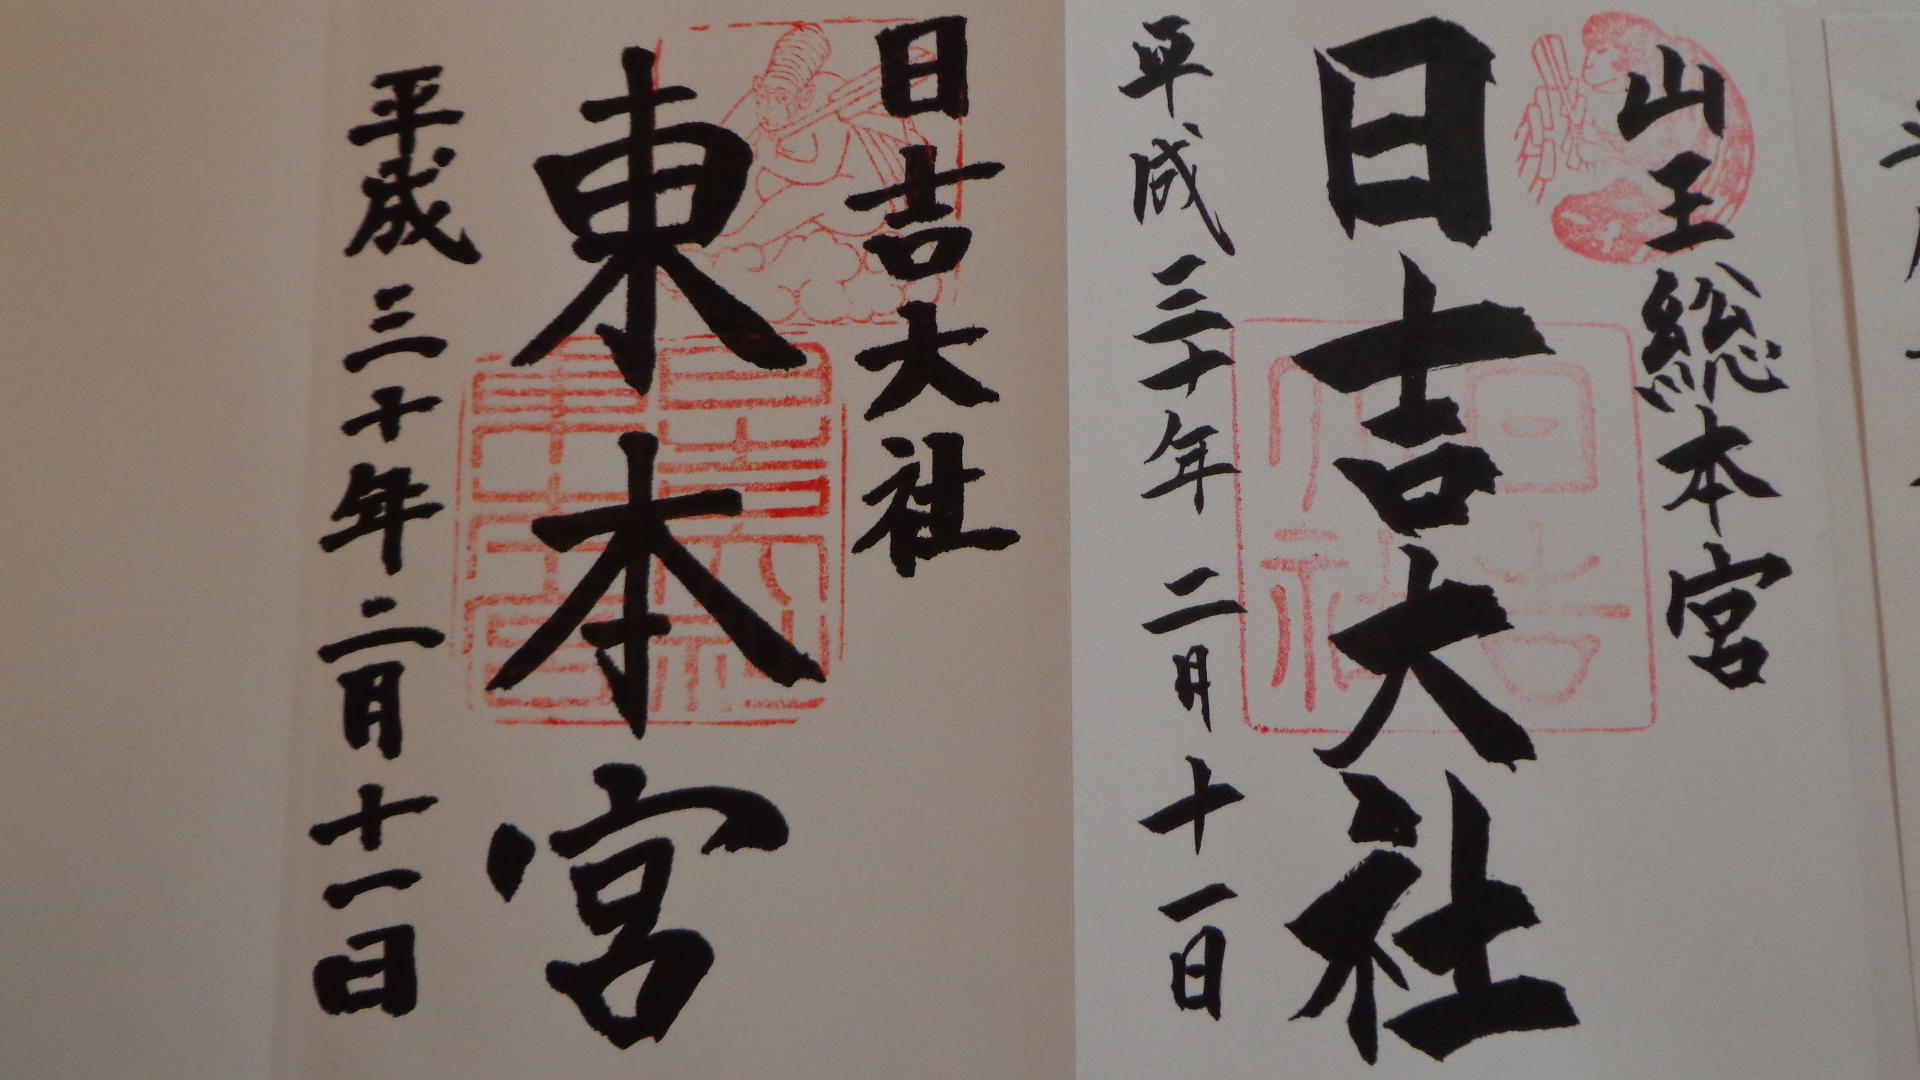 山王総本宮
日吉大社
平成三十年二月十一日
日吉大社
東本宮
平成三十年二月十一日